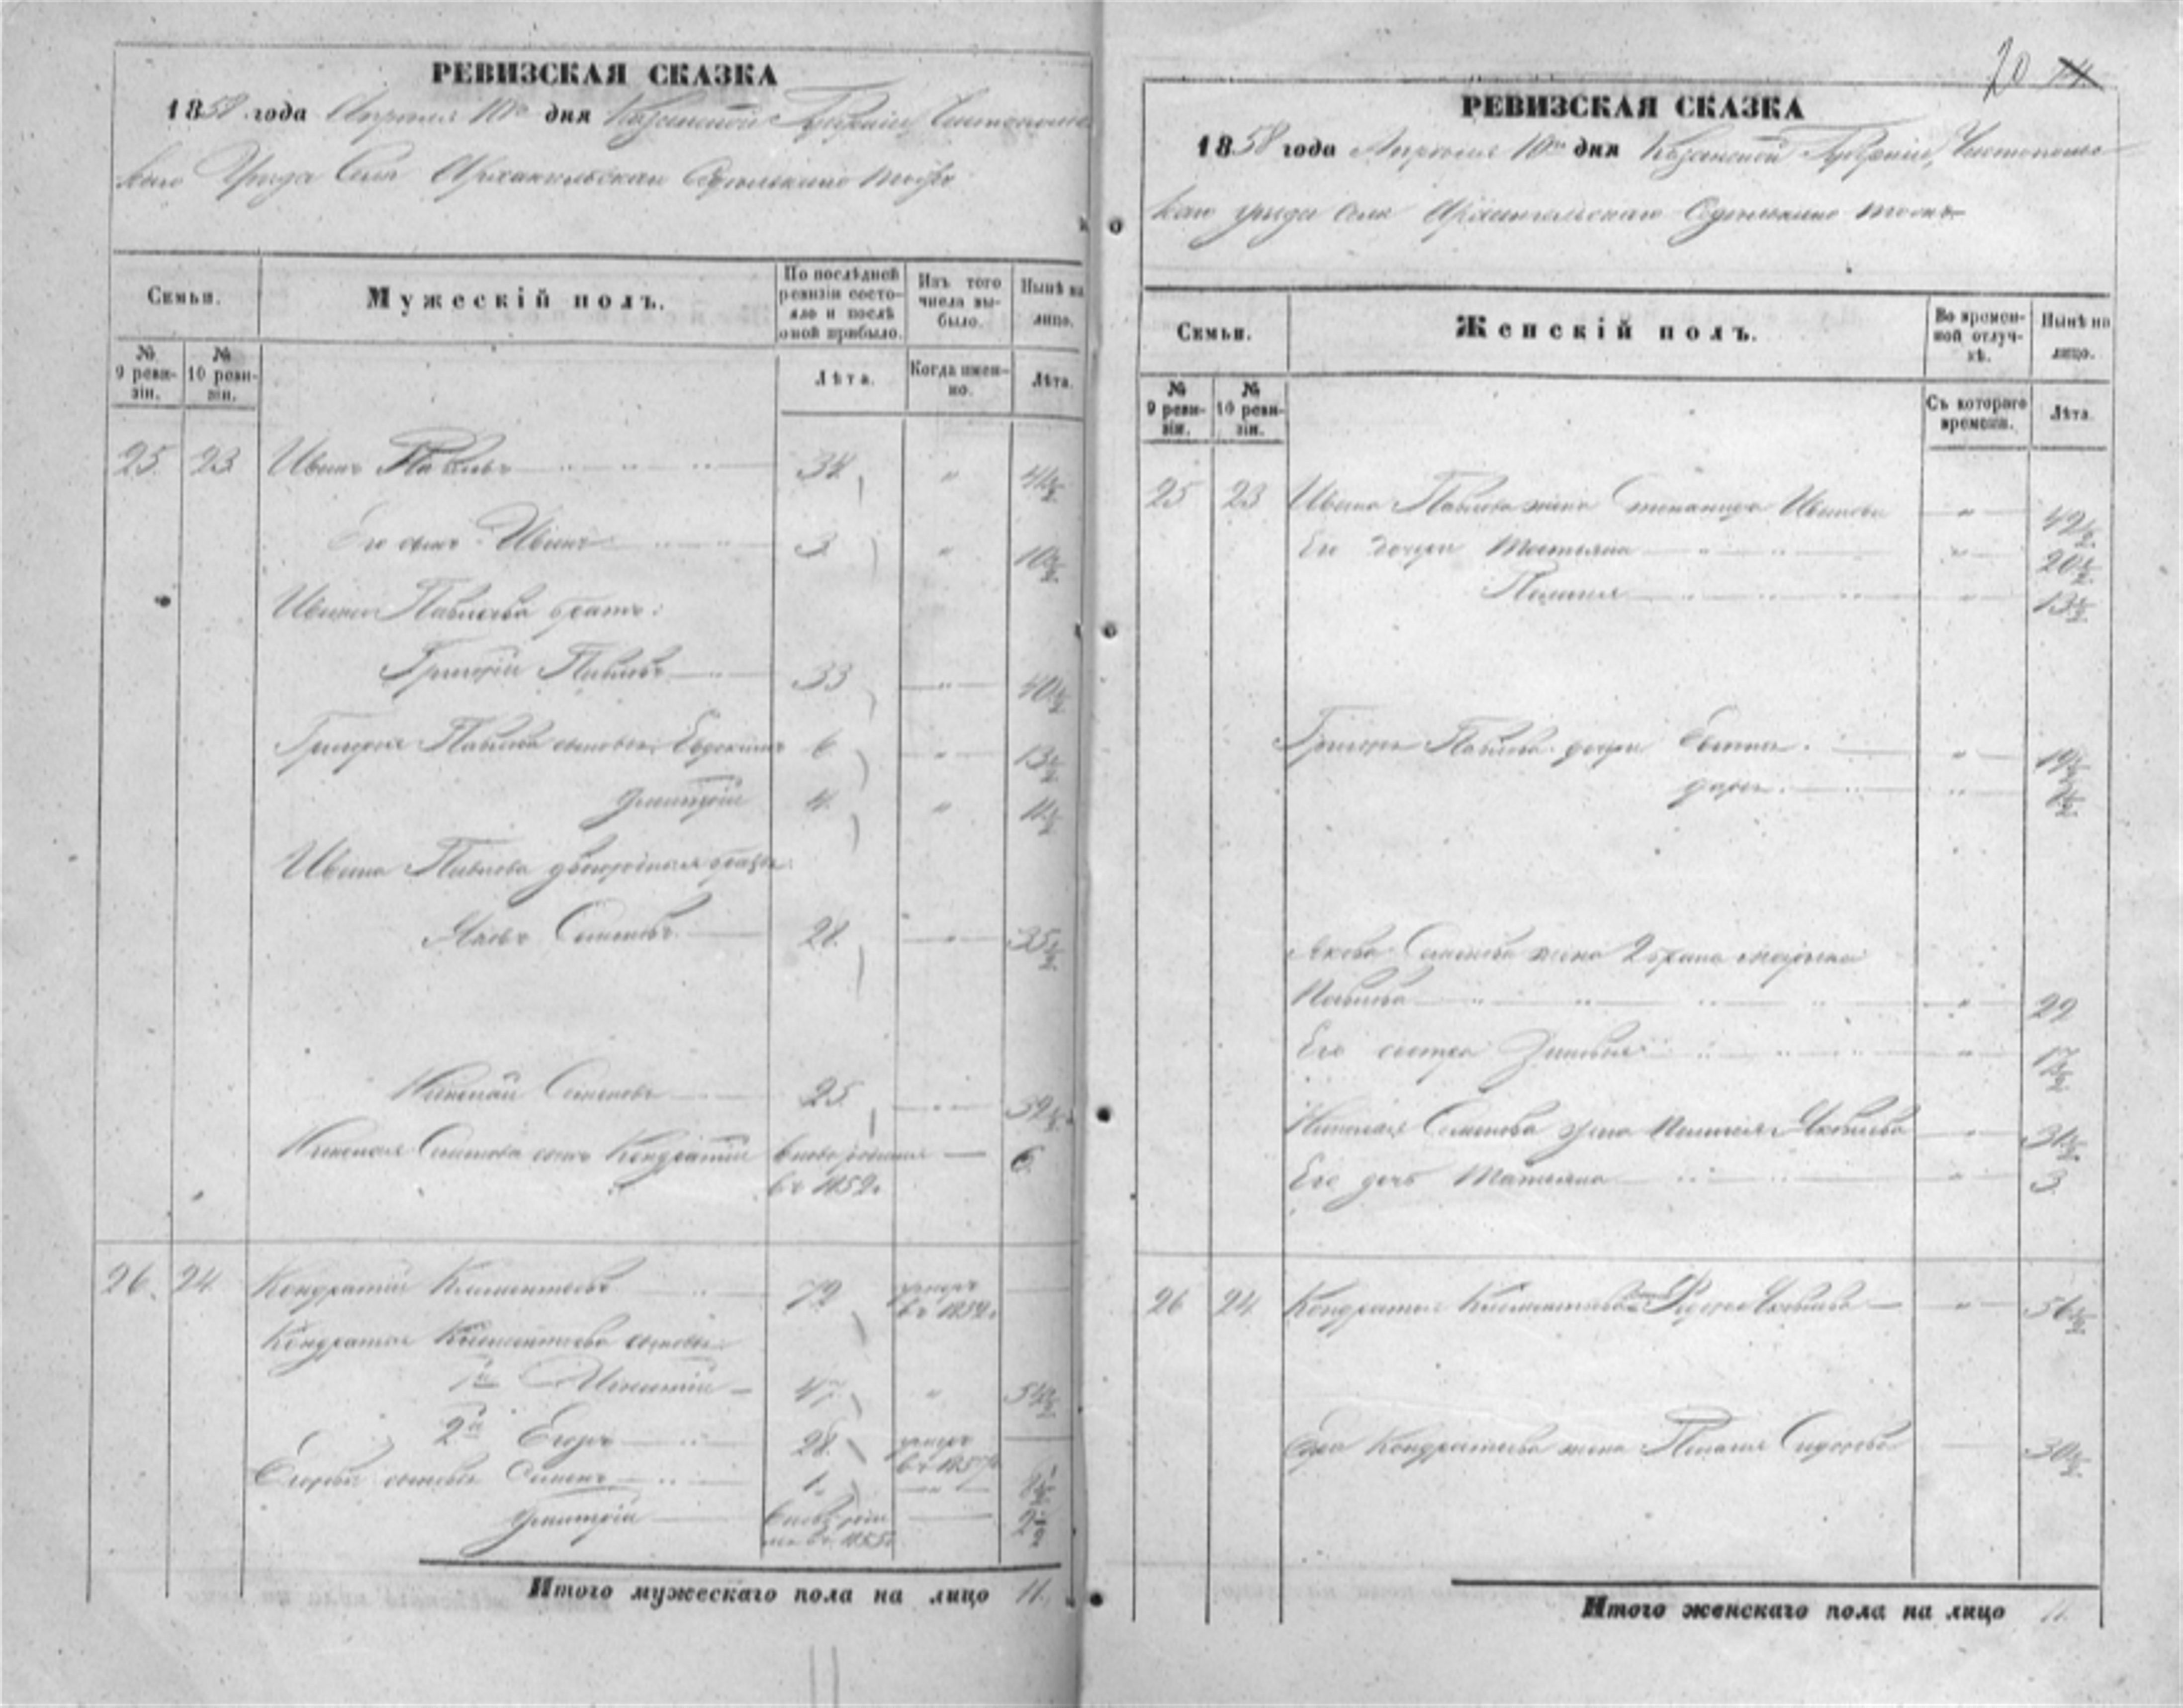 РЕВИЗСКАЯ СКАЗКА
1858 года Апреля 10го дня Казанской Губерніи, Чистополь
скаго Уѣзда Села Архангельскаго тожъ
Семьи.
Мужескій полъ.
По послѣдней ревизіи состо-
яло и послѣ
оной прибыло.
Изъ того
числа вы-
было.
Нынѣ на
лицо.
№
9 реви-
зіи.
№
10 реви-
зіи.
Лѣта.
Когда имен-
но.
Лѣта.
25. 23 Иванъ Павловъ 34 " 41½
Его сынъ Иванъ 3 " 10½
Ивана Павлова братъ:
Григорій Павловъ 33 " 40½
Григорья Павлова сыновья: Евдокимъ 6 " 13½
Дмитрій 4 " 11½
Ивана Павлова двоюродныя братья:
Яковъ Семеновъ 28 " 35½
Николай Семеновъ 25 " 32½
Николая Семенова сынъ Кондратій вновь рожденъ 6
въ 1852г
26. 24 Кондратій Климентьевъ 72 умеръ
въ 1852г
Кондратья Климентьева сыновья
1й 47 " 54½
2й Егоръ 28 умеръ
въ 1857г
Егоровы сыновья Семенъ 1 " 8½
Дмитрій вновь рож
въ 1855г 2
Итого мужескаго пола на лицо 11.
20
РЕВИЗСКАЯ СКАЗКА
1858 года Апреля 10го дня Казанской Губерніи, Чистополь
скаго уѣзда села Архангельскаго тожъ
Семьи.
Женскій полъ.
Во времен-
ной отлуч-
кѣ.
Нынѣ на
лицо.
№
9 реви-
зіи.
№
10 реви-
зіи.
Съ котораго
времени.
Лѣта.
25 23 Ивана Павлова жена Степанида Иванова " 42½
Его дочери Татьяна " 20½
Пелагея " 13½
Григорья Павлова дочери " 19½
Дарья " 1½
Якова Семенова жена 2 брака Марья
Павлова " 29
Его сестра Зиновья " 17½
Николая Семенова жена Пелагея Яковлева " 31½
Его дочь Татьяна " 3
26 24 Кондратья Климентьева жена Яковлева " 56½
Егора Кондратьева жена Пелагея Сидорова 30½
Итого женскаго пола на лицо 11.